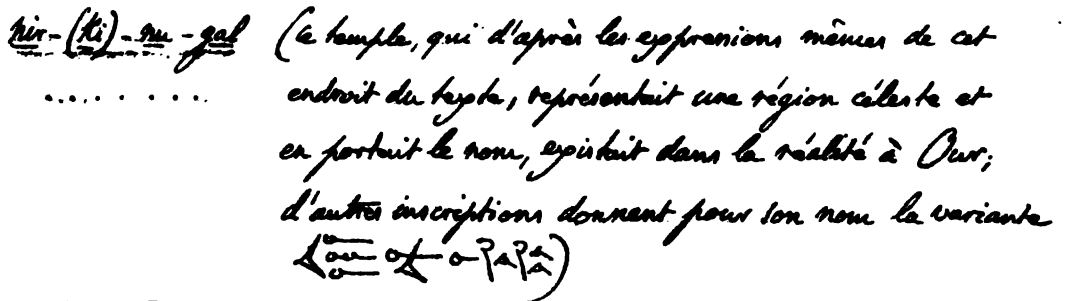 nir-(ki)-nu-gal (Ce temple, qui d'après les expressions mêmes de cet
. . . . . . . . endroit du texte, représentait une région céleste et
en portait le nom, existait dans la réalité à Our;
d'autres inscriptions donnent pour son nom la variante
)